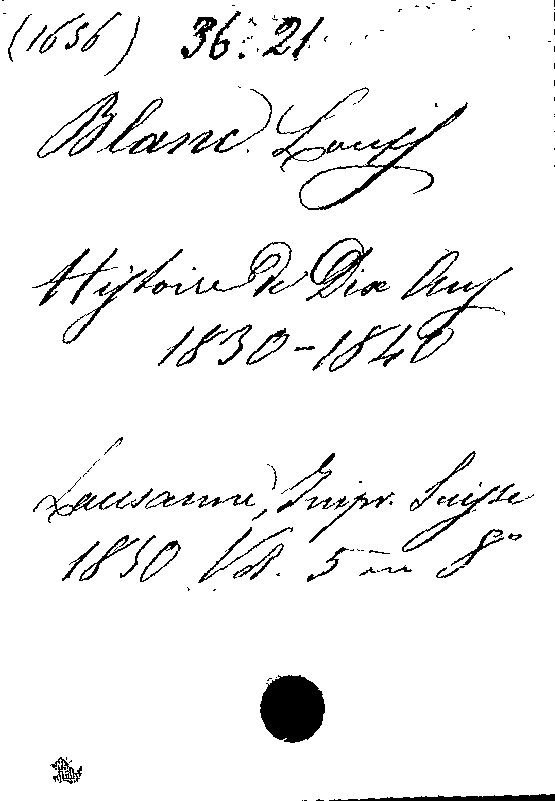 (1656) 36.21
Blanc Louis
Histoire de Dix Ans
1830-1840
Lausanne, Impr. Suisse
1850 Vol. 5 in 8º